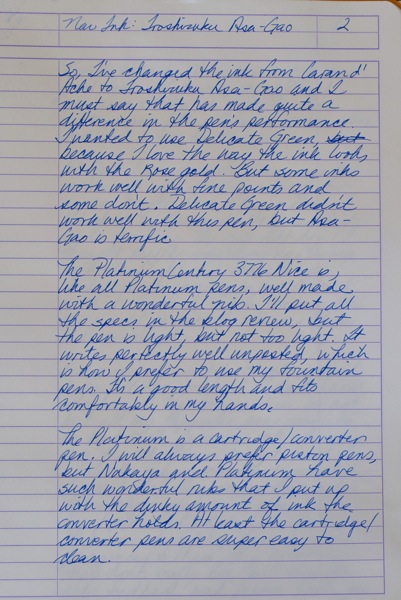 New Ink: Iroshizuku Asa-Gao 2
So, I've changed the ink from Caran d'
Ache to Iroshizuku Asa-Gao and I
must say that has made quite a
difference in the pen's performance.
I wanted to use Delicate Green but
because I love the way the ink looks
with the Rose gold. But some inks
work well with fine points and
some don't. Delicate Green didn't
work well with this pen, but Asa-
Gao is terrific.
The Platinum Century 3776 Nice is,
like all Platinum pens, well made
with a wonderful nib. I'll put all
the specs in the blog review, but
the pen is light, but not too light. It
writes perfectly well unposted, which
is how I prefer to use my fountain
pens. It's a good length and fits
comfortably in my hands.
The Platinum is a cartridge/converter
pen. I will always prefer piston pens,
but Nakaya and Platinum have
such wonderful nibs that I put up
with the dinky amount of ink the
converter holds. At least the cartridge/
converter pens are super easy to
clean.